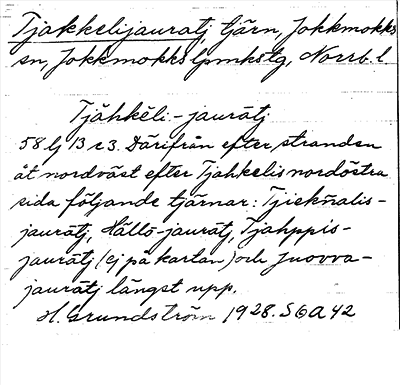 Tjakkelijauratj, tjärn, Jokkmokks
sn, Jokkmokks lpmkstg, Norrb. l.
Tjåhkēli-jaurātj
58 lj 13 c 3. Därifrån efter stranden
åt nordväst efter Tjåhkelis nordöstra
sida följande tjärnar: Tjiekñalis-
jaurātj, Hállō-jaurātj, Tjåhppis-
jaurātj (ej på kartan) och Juovva-
jaurātj längst upp.
H. Grundström 1928. S6A42